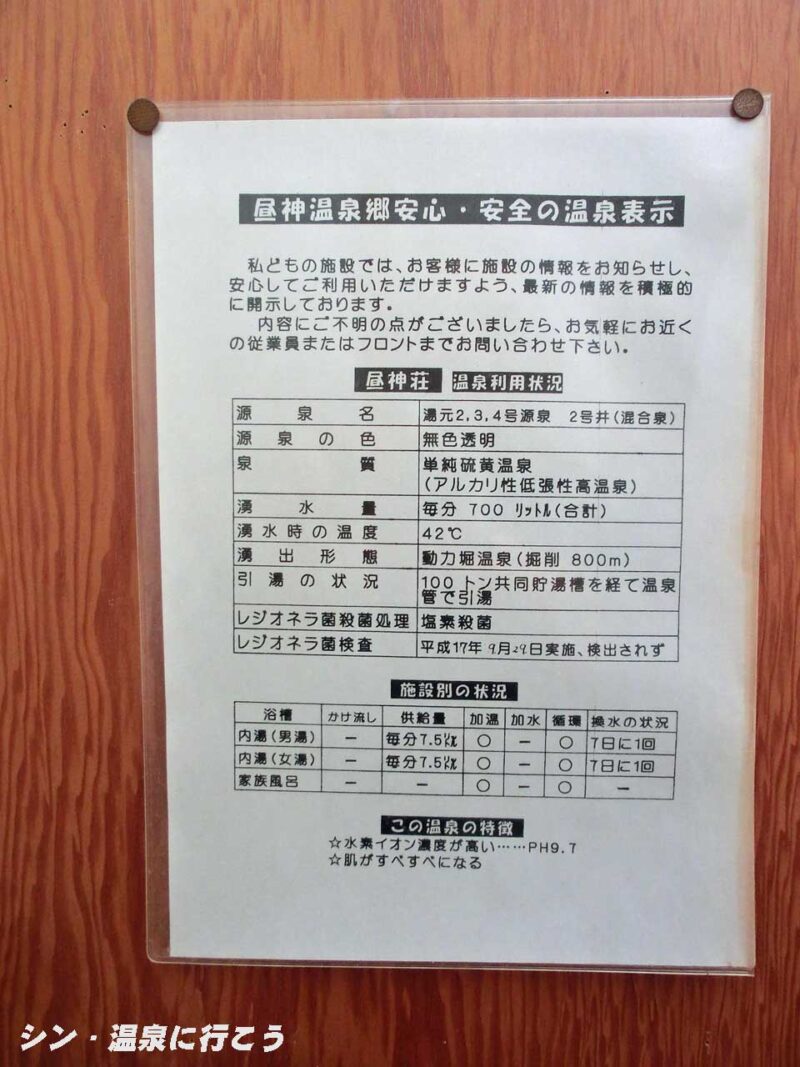 昼神温泉郷安心・安全の温泉表示
私どもの施設では、お客様に施設の情報をお知らせし、
安心してご利用いただけますよう、最新の情報を積極的
に開示しております。
内容にご不明の点がございましたら、お気軽にお近く
の従業員またはフロントまでお問い合わせ下さい。
昼神荘 温泉利用状況
源泉名 湯元2,3,4号源泉 2号井(混合泉)
源泉の色 無色透明
泉質 単純硫黄温泉
(アルカリ性低張性高温泉)
湧水量 毎分 700 リットル(合計)
湧水時の温度 42℃
湧出形態 動力堀温泉(掘削 800m)
引湯の状況 100トン共同貯湯槽を経て温泉
管で引湯
レジオネラ菌殺菌処理 塩素殺菌
レジオネラ菌検査 平成17年9月29日実施、検出されず
施設別の状況
浴槽 かけ流し 供給量 加温 加水 循環 換水の状況
内湯(男湯) − 毎分7.5㍑ ○ − ○ 7日に1回
内湯(女湯) − 毎分7.5㍑ ○ − ○ 7日に1回
家族風呂 − − ○ − ○ −
この温泉の特徴
☆水素イオン濃度が高い……PH9.7
☆肌がすべすべになる
シン・温泉に行こう